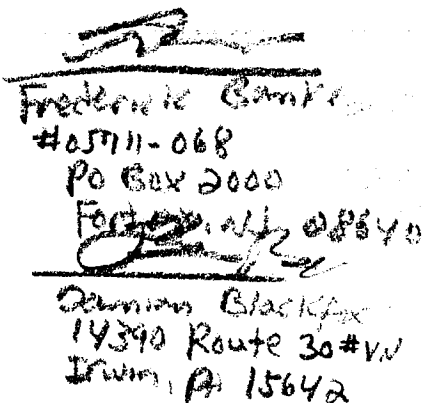 Frederick Banks
#05711-068
PO Box 2000
Fort Dix, NJ 08640
Damian Blackfox
14390 Route 30 #
Irwin, PA 15642